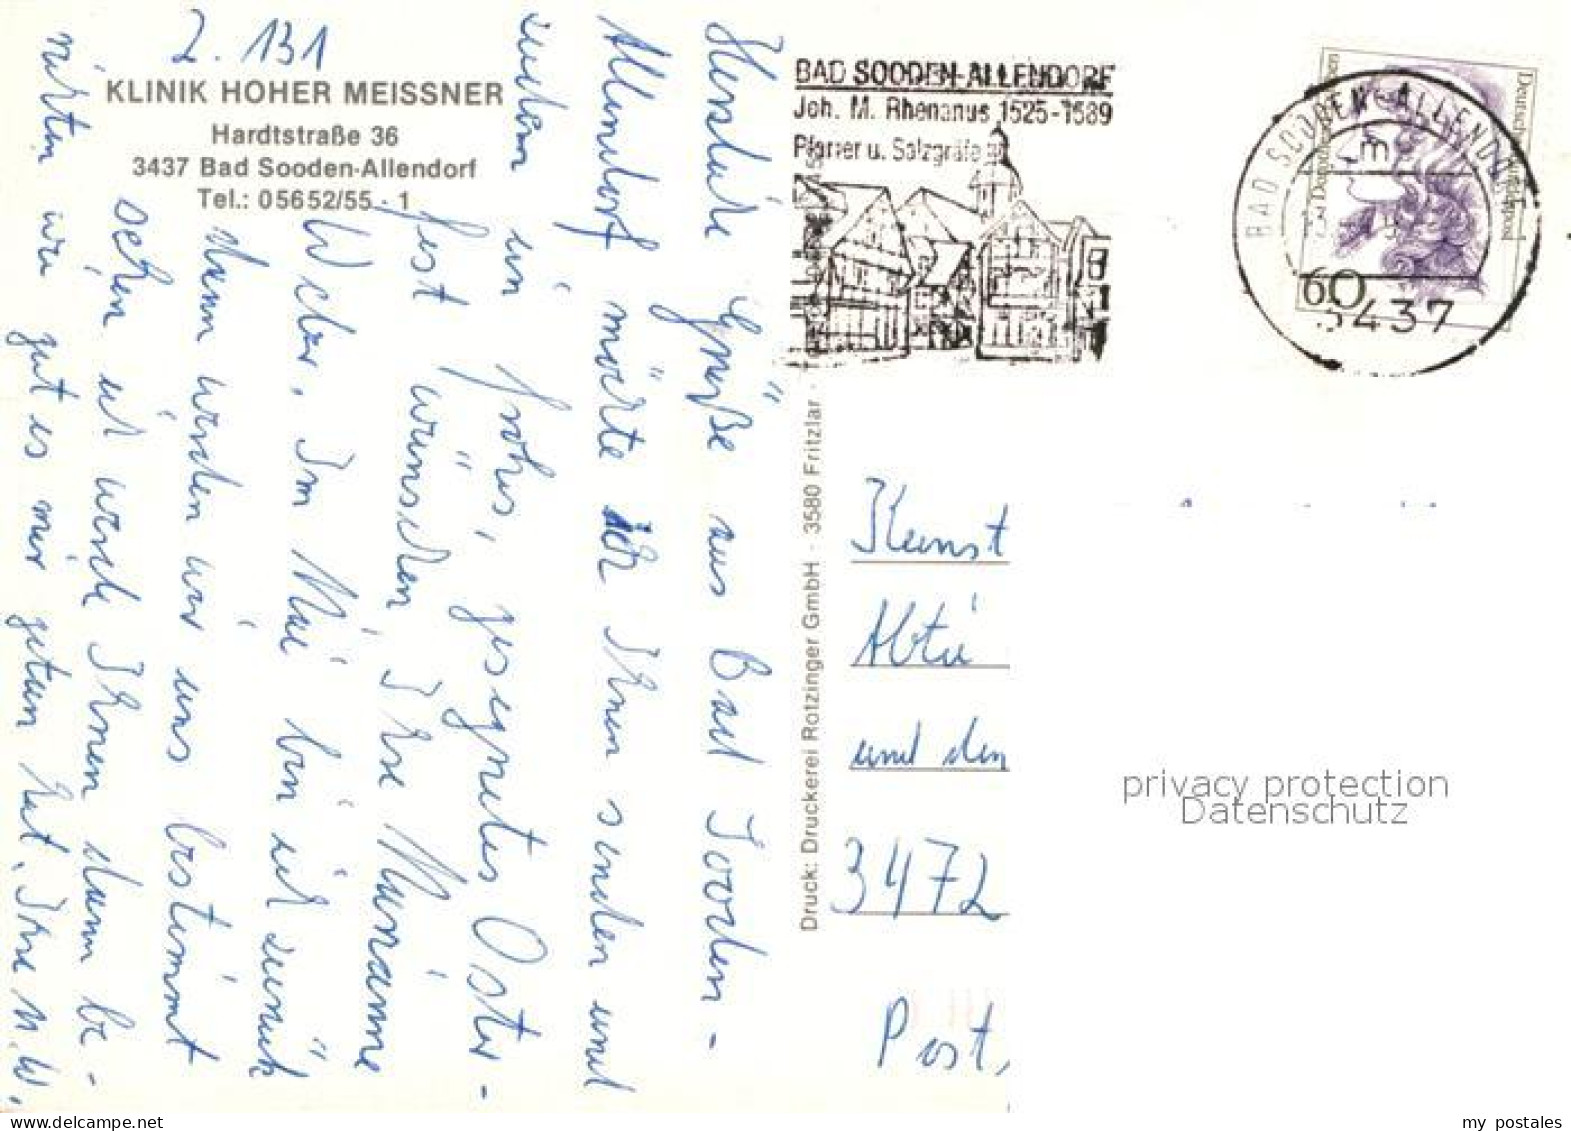 Z. 131
KLINIK HOHER MEISSNER
Hardtstraße 36
3437 Bad Sooden-Allendorf
Tel.: 05652/55 - 1
Herzliche Grüße aus Bad Sooden-
Allendorf möchte ich Ihnen senden und
zudem ein frohes, gesegnetes Oster-
fest wünschen, Ihre Marianne
Weber. Im Mai bin ich zurück
dann werden wir uns bestimmt
sehen ich werde Ihnen dann be-
richten wie gut es mir getan hat. Ihre M.W.
Druck: Druckerei Rotzinger GmbH · 3580 Fritzlar ·
BAD SOODEN-ALLENDORF
Joh. M. Rhenanus 1525-1589
Pfarrer u. Salzgräfe
BAD SOODEN-ALLENDORF
3437
Deutsche Bundespost
60
Kunst
Abtei
und den
3472
Post,
privacy protection
Datenschutz
my postales